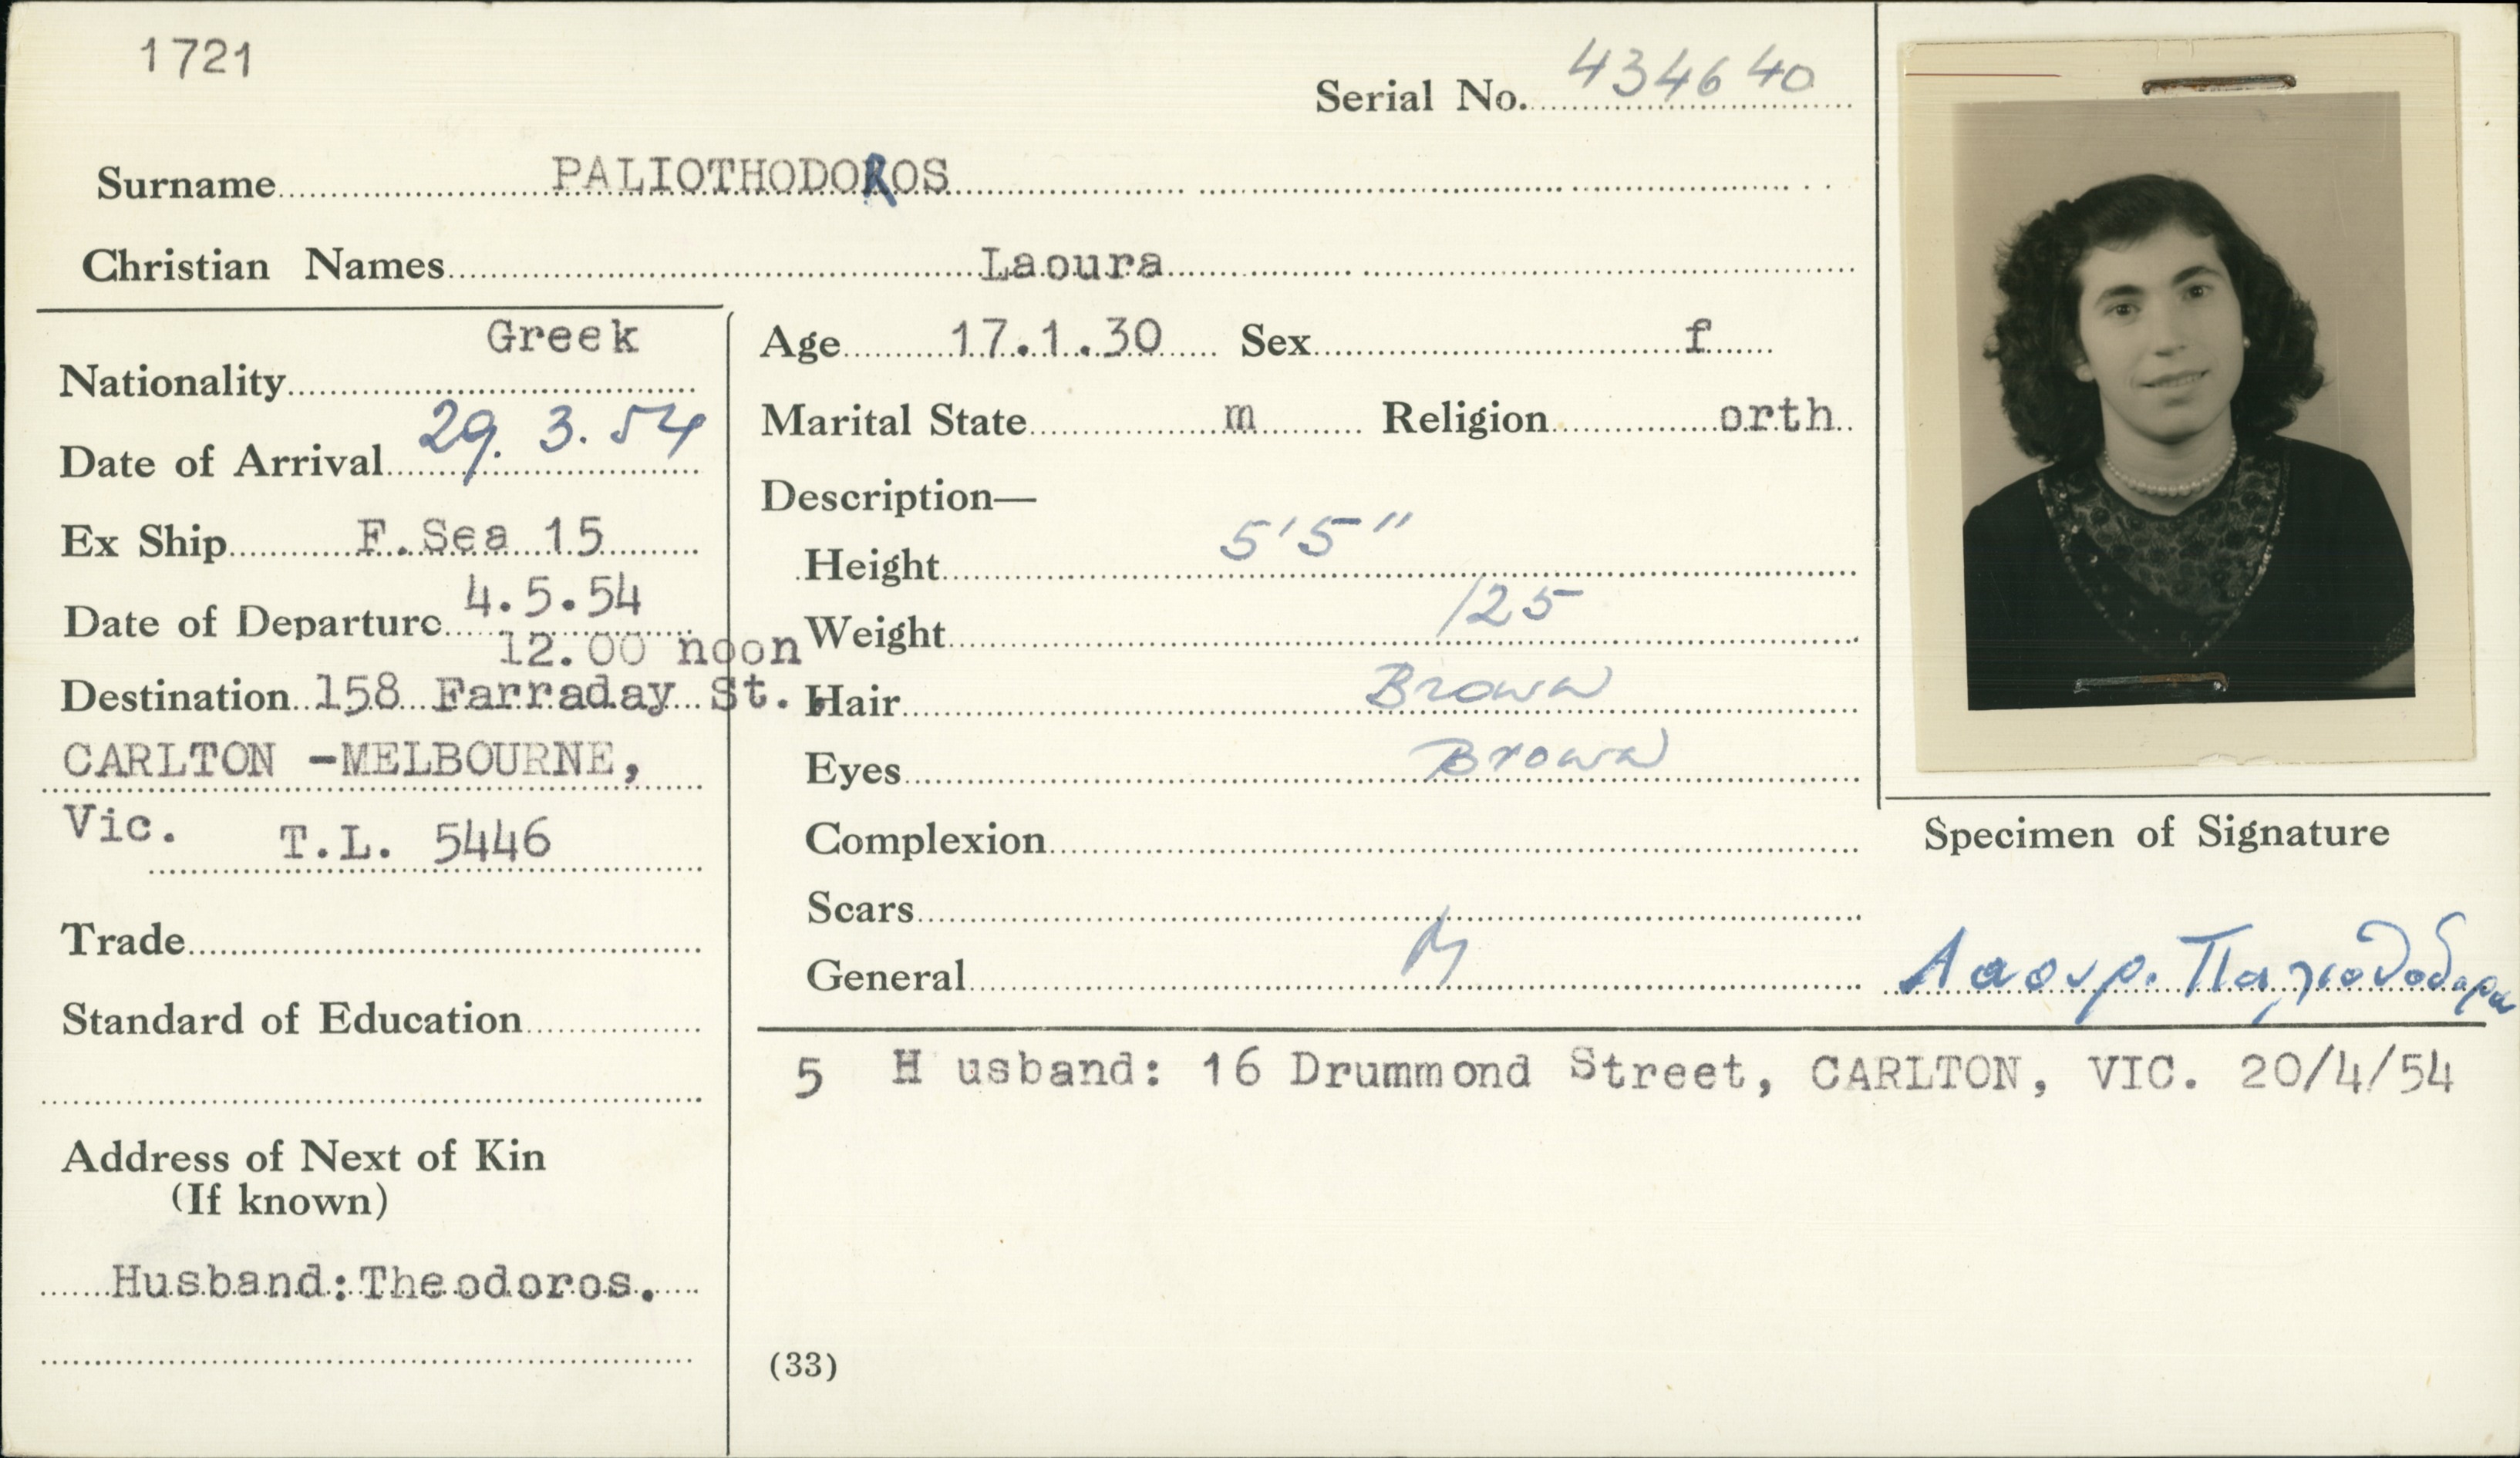 1721
Serial No. 434640
Surname PALIOTHODOROS
Christian Names Laoura
Nationality Greek
Date of Arrival 29. 3. 54
Ex Ship F.Sea 15
Date of Departure 4.5.54
12.00 noon
Destination 158 Farraday St.,
CARLTON -MELBOURNE,
Vic. T.L. 5446
Trade
Standard of Education
Address of Next of Kin
(If known)
Husband:Theodoros.
Age 17.1.30 Sex f
Marital State m Religion orth
Description—
Height 5'5"
Weight 125
Hair Brown
Eyes Brown
Complexion
Scars
General
5 H usband: 16 Drummond Street, CARLTON, VIC. 20/4/54
(33)
Specimen of Signature
Λαουρ.